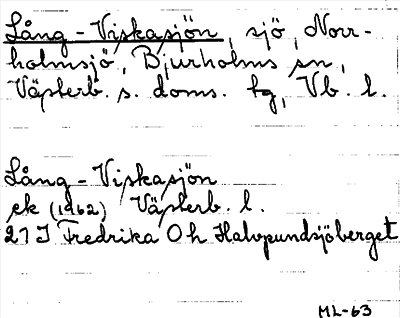 Lång-Viskasjön, sjö, Norr-
holmsjö, Bjurholms sn,
Västerb. s. doms. tg, Vb. l.
Lång-Viskasjön
ek (1962) Västerb. l.
21 I Fredrika Oh Halvpundsjöberget
ML-63